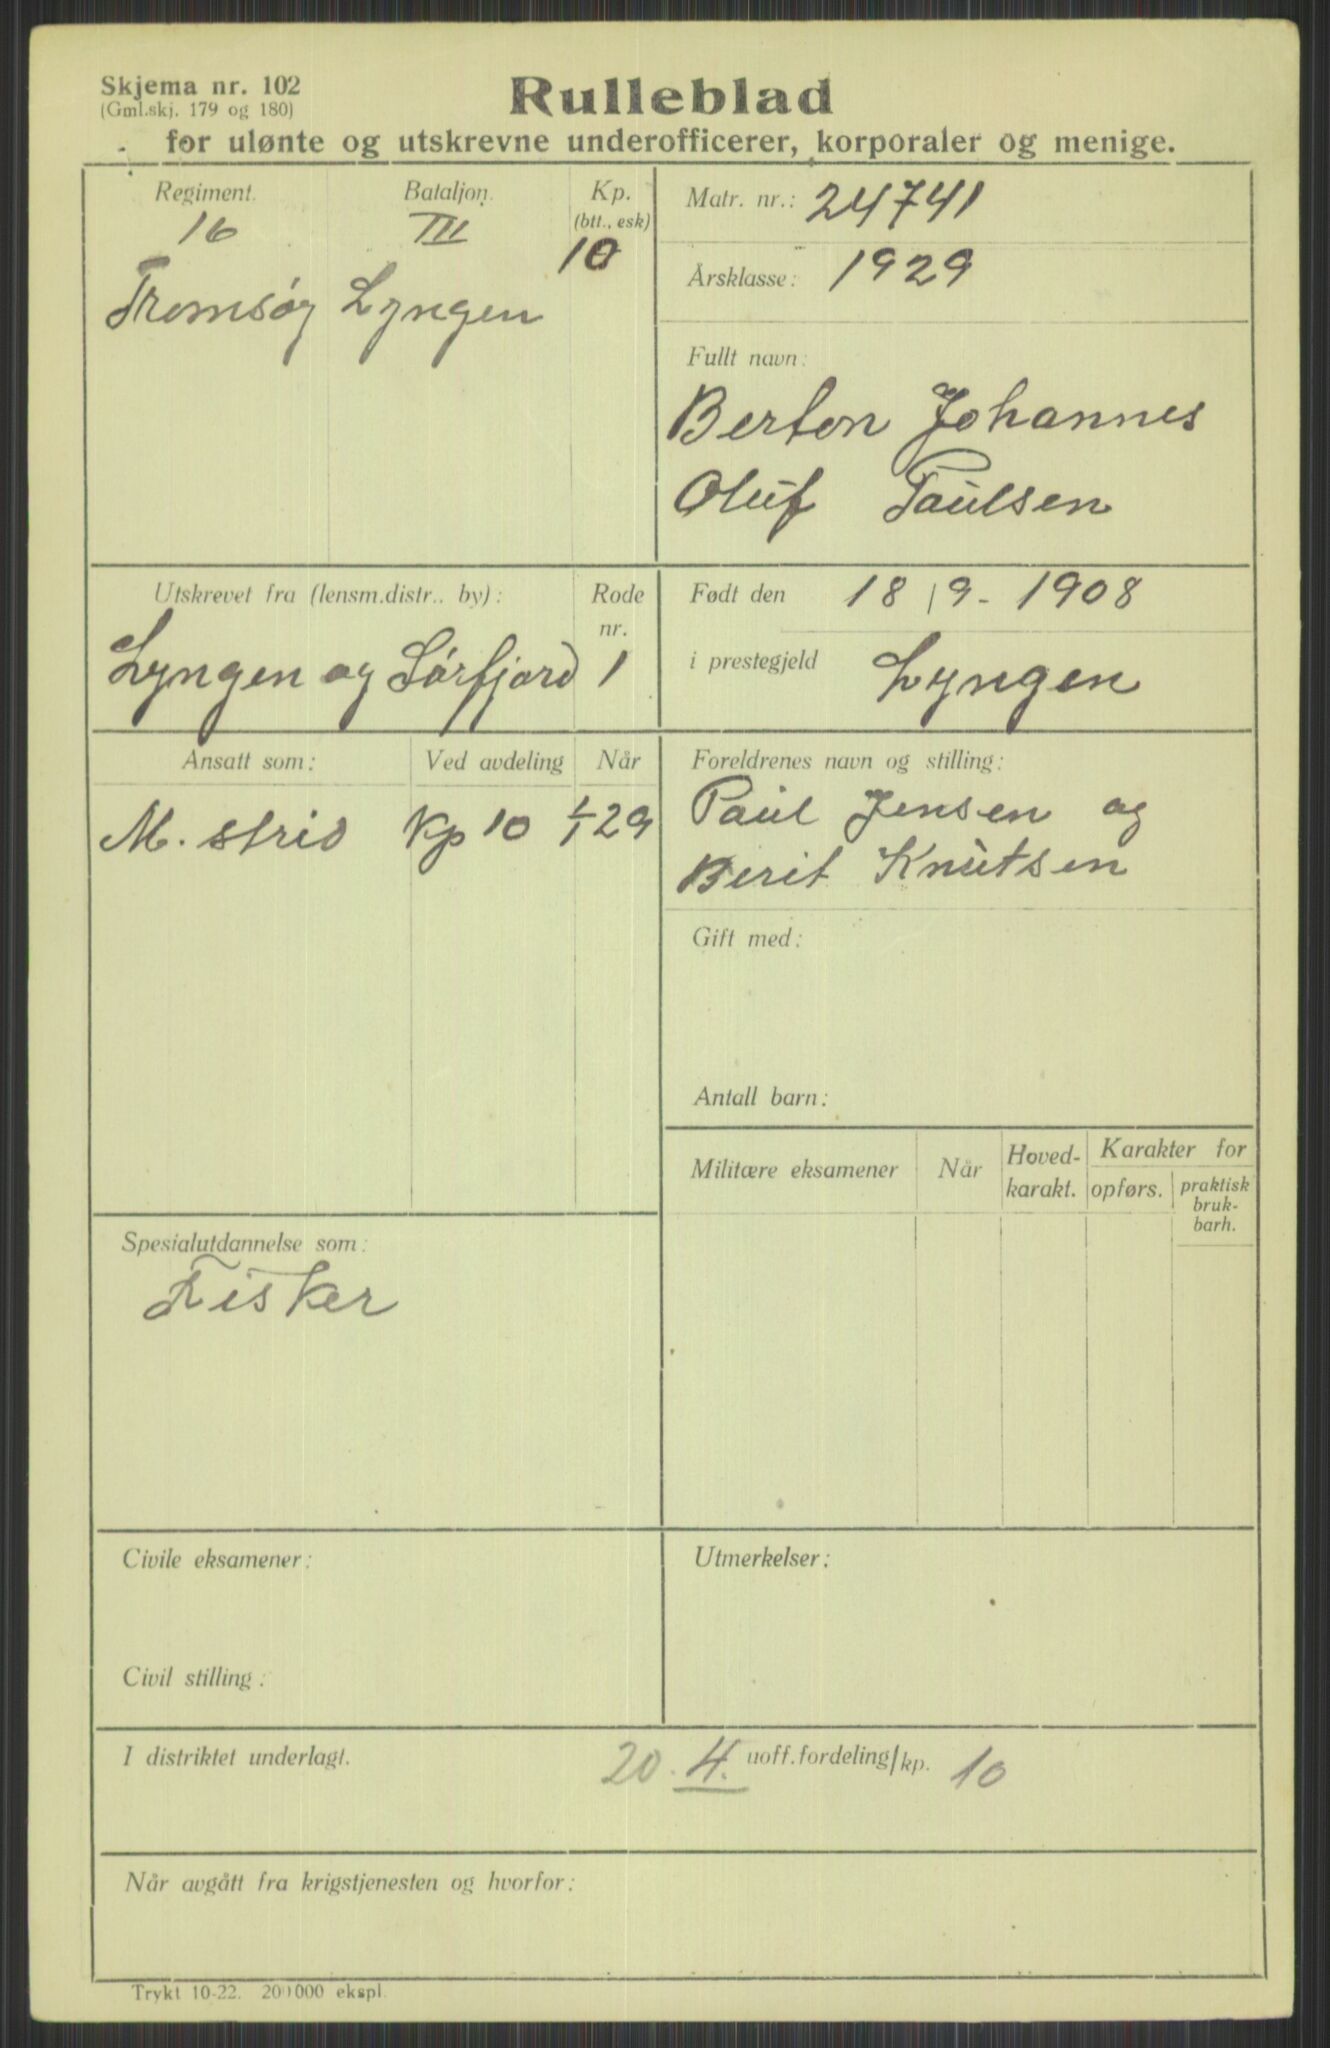 Skjema nr. 102
(Gml.skj. 179 og 180)
Rulleblad
for ulønte og utskrevne underofficerer, korporaler og menige.
Regiment. Bataljon. Kp.
(btt., esk)
16 III 10
Tromsøy Lyngen
Matr. nr.: 24741
Årsklasse: 1929
Fullt navn:
Berton Johannes
Oluf Paulsen
Utskrevet fra (lensm.distr.. by): Rode
nr.
Lyngen og Sørfjord 1
Født den 18/9-1908
i prestegjeld Lyngen
Ansatt som: Ved avdeling Når
M. strid Kp 10 1/1 29
Foreldrenes navn og stilling:
Paul Jensen og
Berit Knutsen
Gift med:
Antall barn:
Militære eksamener Når Hoved-
karakt. Karakter for
opførs. praktisk
bruk-
barh.
Spesialutdannelse som:
Fisker
Civile eksamener:
Civil stilling:
Utmerkelser:
I distriktet underlagt. 20. 4. uoff.fordeling/kp. 10
Når avgått fra krigstjenesten og hvorfor:
Trykt 10-22. 200000 ekspl.